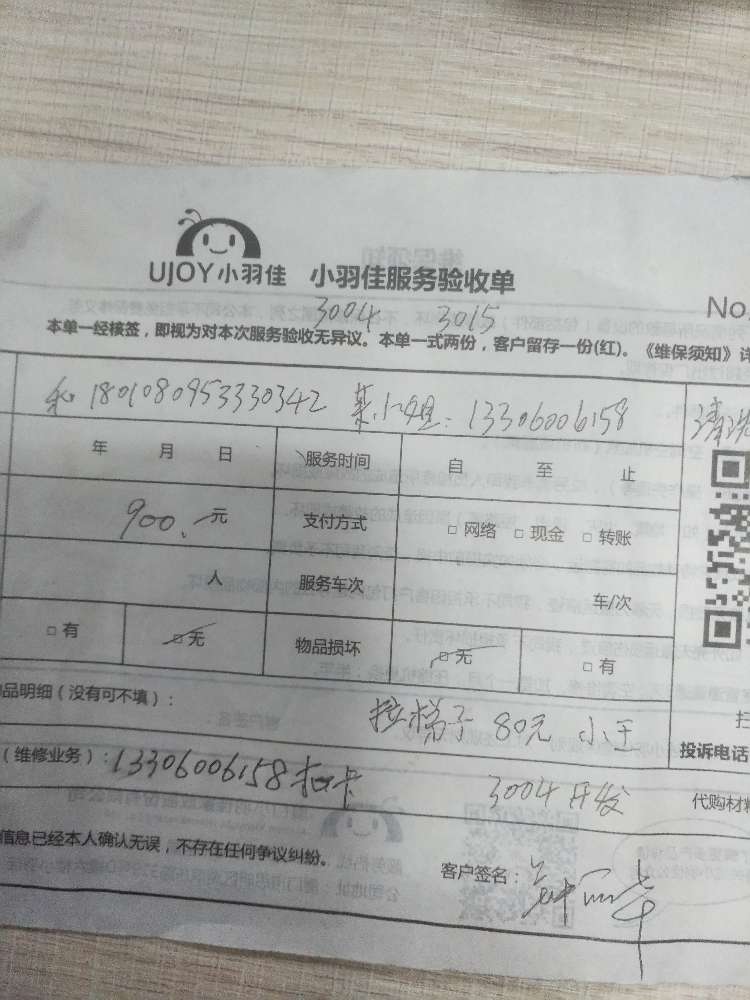 UJOY小羽佳 小羽佳服务验收单
No.
3004 3015
本单一经核签，即视为对本次服务验收无异议。本单一式两份，客户留存一份(红)。《维保须知》详
1801080953330342 叶小姐：13306006158
年 月 日 服务时间 自 至 止
900.元 支付方式 □ 网络 □ 现金 □ 转账
人 服务车次 车/次
□ 有 □ 无 物品损坏 □ 无 □ 有
品明细（没有可不填）：
拉梯子 80元 小于
投诉电话
（维修业务）：13306006158扣卡 3004开发
代购材料
信息已经本人确认无误，不存在任何争议纠纷。
客户签名：